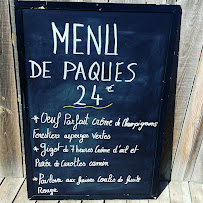 MENU
DE PAQUES
24 €
* Oeuf Parfait crème de Champignons
forestiers asperges vertes
* Gigot de 7 heures crème d'ail et
Purée de Carottes cumin
* Pavlova aux fraises Coulis de fruits
Rouge